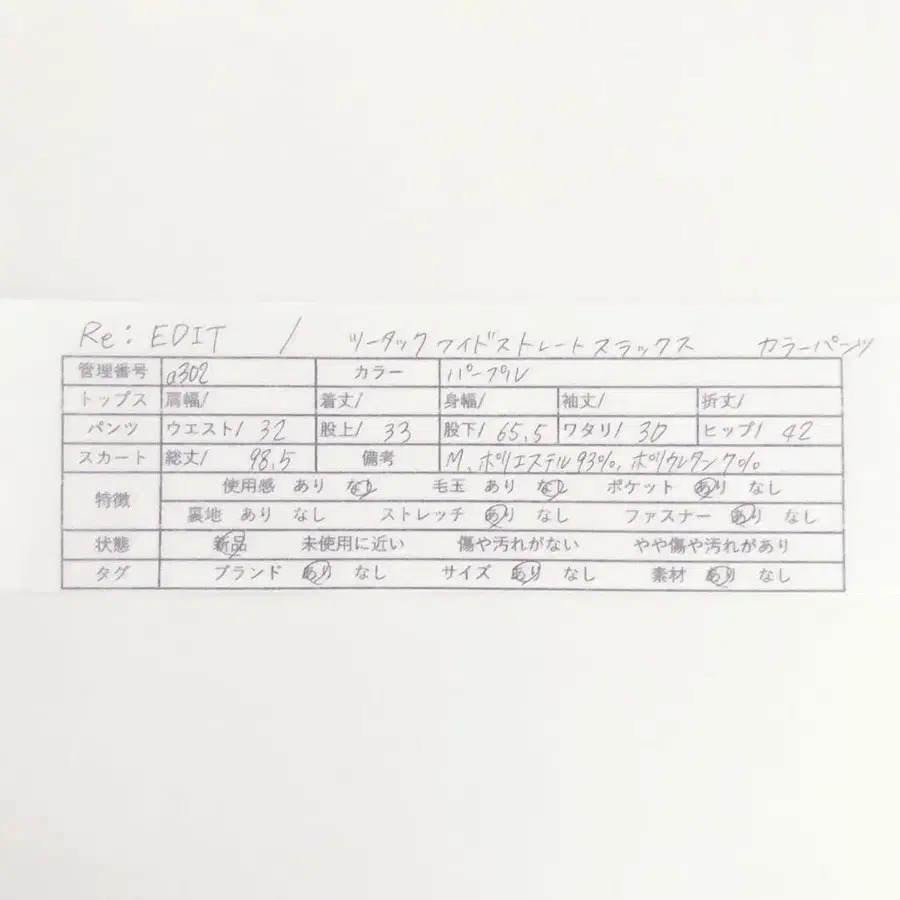 Re: EDIT / ツータックワイドストレートスラックス カラーパンツ
管理番号 a302 カラー パープル
トップス 肩幅/ 着丈/ 身幅/ 袖丈/ 裄丈/
パンツ ウエスト/ 32 股上/ 33 股下/ 65.5 ワタリ/ 30 ヒップ/ 42
スカート 総丈/ 98.5 備考 M、ポリエステル93%、ポリウレタン7%
特徴 使用感 あり なし 毛玉 あり なし ポケット あり なし
裏地 あり なし ストレッチ あり なし ファスナー あり なし
状態 新品 未使用に近い 傷や汚れがない やや傷や汚れがあり
タグ ブランド あり なし サイズ あり なし 素材 あり なし